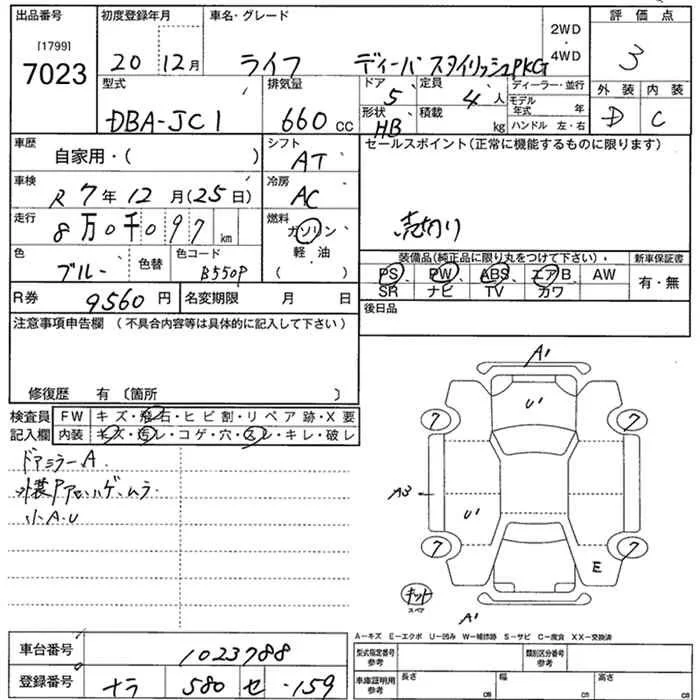 出品番号 初度登録年月 車名・グレード 2WD・4WD 評価点
[1799]
7023 20 12月 ライフ ディーバスタイリッシュPKG 3
型式 排気量 ドア 5 定員 4人 ディーラー・並行 外装 内装
DBA-JC1 660cc 形状 HB 積載 kg モデル年式 年 D C
ハンドル 左・右
車歴 自家用・( ) シフト AT セールスポイント(正常に機能するものに限ります)
車検 R7年12月(25日) 冷房 AC
売切り
走行 8万0千097km 燃料 ガソリン
軽油
( )
色 ブルー 色替 色コード B550P 装備品(純正品に限り丸をつけて下さい) 新車保証書
PS PW ABS エアB AW 有・無
SR ナビ TV カワ
R券 9560円 名変期限 月 日 後日品
注意事項申告欄 (不具合内容等は具体的に記入して下さい)
修復歴 有 〔箇所 〕
検査員 FW キズ・飛石・ヒビ割・リペア跡・X要
記入欄 内装 キズ・汚レ・コゲ・穴・スレ・キレ・破レ
ドアミラーA
外装Pアセ・ハゲ・ムラ
小A.U
A1
U1
7 7
A3
U1
7 7
E
キット
スペア
A1
A-キズ E-エクボ U-凹み W-補修跡 S-サビ C-腐食 XX-交換済
車台番号 1023788 型式指定番号 参考 類別区分番号 参考
登録番号 ナラ 580 せ ・159 車庫証明用 参考 長さ cm 幅 cm 高さ cm